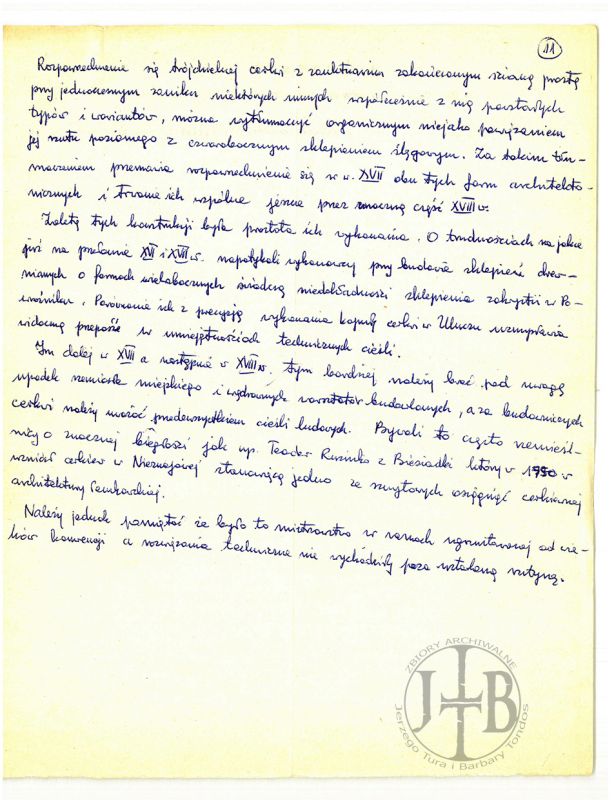 11
Rozpowszechnienie się trójdzielnej cerkwi z sanktuarium zakończonym ścianą prostą
przy jednoczesnym zaniku niektórych innych współcześnie z nią powstałych
typów i wariantów, można wytłumaczyć organicznym niejako powiązaniem
jej rzutu poziomego z czworobocznym sklepieniem zrębowym. Za takim tłu-
maczeniem przemawia rozpowszechnienie się w w. XVII obu tych form architekto-
nicznych i trwanie ich wspólne jeszcze przez znaczną część XVIII w.
Zaletą tych konstrukcji była prostota ich wykonania. O trudnościach na jakie
już na przełomie XVI i XVII w. napotykali wykonawcy przy budowie sklepień drew-
nianych o formach wielobocznych świadczą niedokładności sklepienia zakrystii w Po-
woźniku. Porównanie ich z precyzją wykonania kopuły cerkwi w Uluczu uzmysławia
widoczną przepaść w umiejętnościach technicznych cieśli.
Im dalej w XVII a następnie w XVIII w. tym bardziej należy brać pod uwagę
upadek rzemiosła miejskiego i wędrownych warsztatów budowlanych, a za budowniczych
cerkwi należy uważać przedewszystkiem cieśli ludowych. Bywali to często rzemieśl-
nicy o znacznej biegłości jak np. Teodor Rusinko z Biesiadki który w 1750 w
wzniósł cerkiew w Nieznajowej stanowiącą jedno ze szczytowych osiągnięć cerkiewnej
architektury łemkowskiej.
Należy jednak pamiętać że było to mistrzostwo w ramach ugruntowanej od wie-
ków konwencji a rozwiązania techniczne nie wychodziły poza ustaloną rutynę.
ZBIORY ARCHIWALNE
JTB
Jerzego Tura i Barbary Tondos